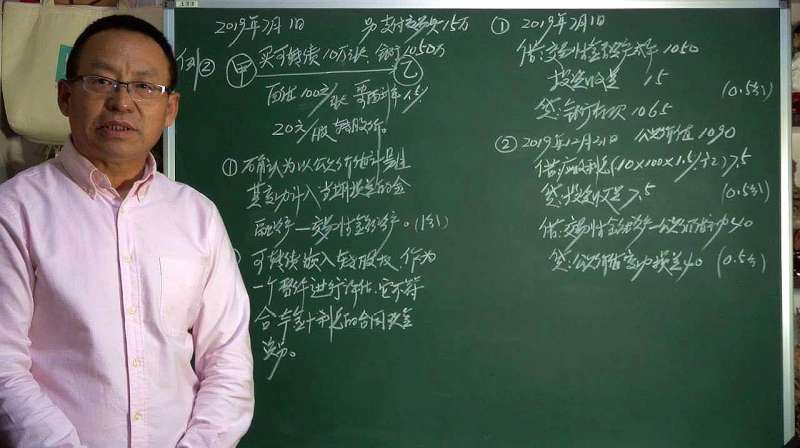 2019年7月1日 另支付交易费15万
例② 甲 买可转债10万张、银行1050万 乙
面值100元/张 票面利率1.5%
20元/股 转股价。
① 应确认为以公允价值计量且
其变动计入当期损益的金
融资产—交易性金融资产。(1分)
可转债嵌入转股权,作为
一个整体进行评估,它不符
合本金+利息的合同现金
流量。
① 2019年7月1日
借:交易性金融资产—成本 1050
投资收益 15
贷:银行存款 1065
(0.5分)
② 2019年12月31日 公允价值1090
借:应收利息(10×100×1.5%÷2)7.5
贷:投资收益 7.5 (0.5分)
借:交易性金融资产—公允价值变动 40
贷:公允价值变动损益 40 (0.5分)